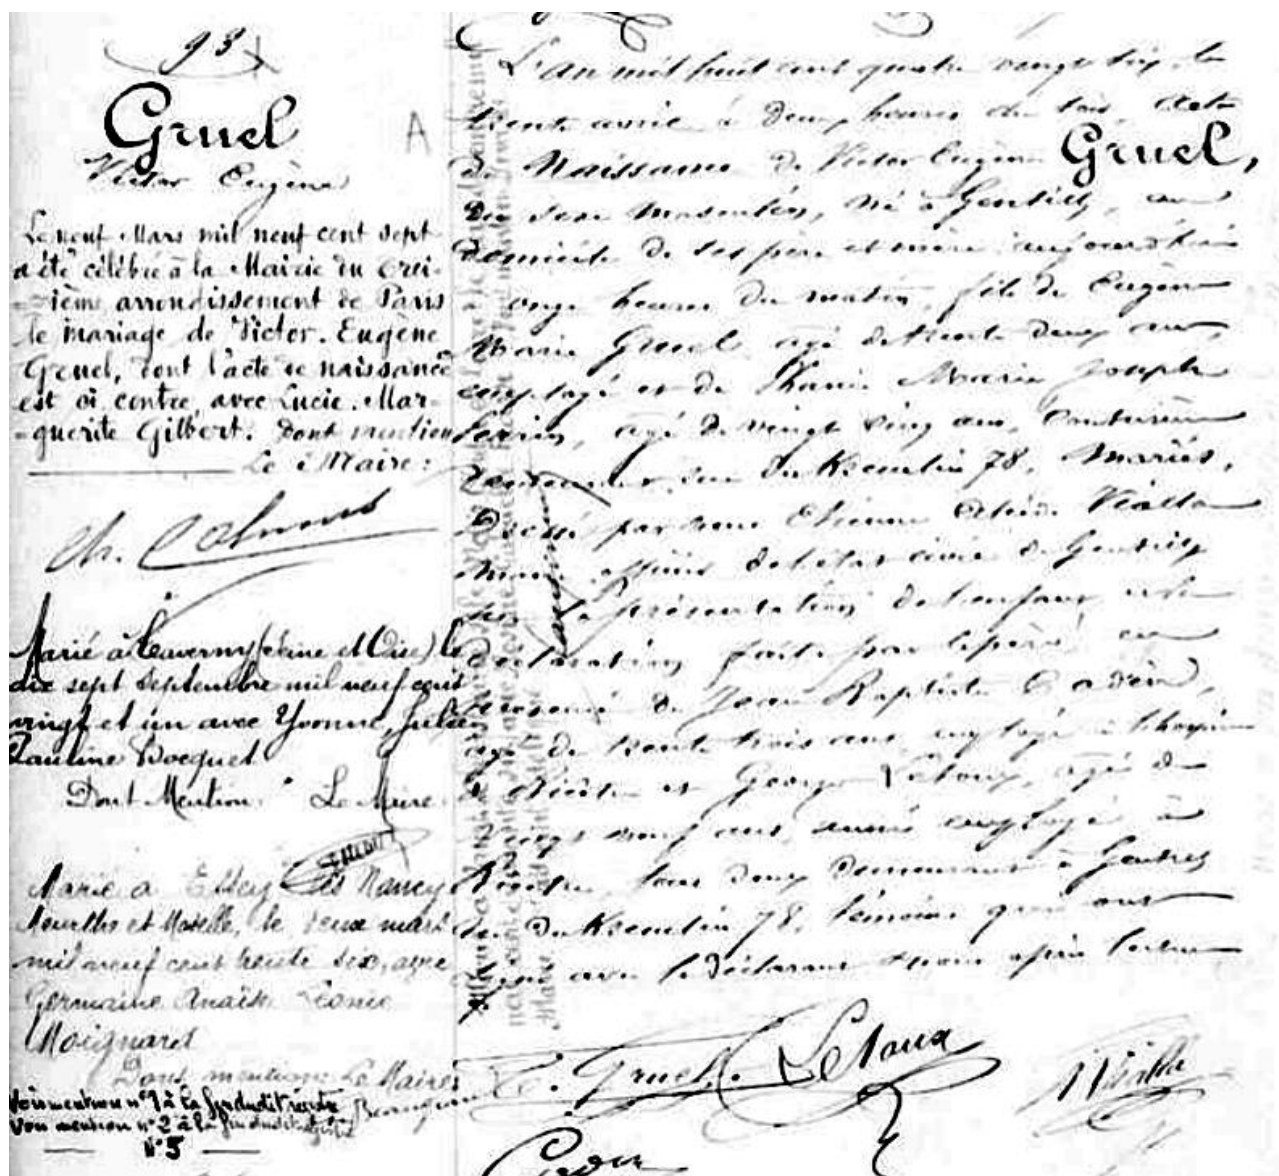 93
Gruel
Victor Eugène
A
Le neuf Mars mil neuf cent sept
a été célébré à la Mairie du Trei-
-zième arrondissement de Paris
le mariage de Victor. Eugène
Gruel, dont l'acte de naissance
est ci contre avec Lucie. Mar-
-guerite Gilbert. Dont mention
Le Maire:
Marié à Taverny (Seine et Oise) le
dix sept septembre mil neuf cent
vingt et un avec Yvonne, Julien
Pauline Bocquet
Dont Mention. Le Maire
Marié à Essey les Nancy
Meurthe et Moselle, le deux mars
mil neuf cent trente six, avec
Germaine Anaïs Léonie
Moignard
Dont mention Le Maire
Voir mention n°1 à la fin dudit registre
Voir mention n°2 à la fin dudit registre
N°5
L'an mil huit cent quatre vingt six, le
trente avril à deux heures du soir, Acte
de Naissance de Victor Eugène Gruel,
du sexe masculin, né à Gentilly, au
domicile de ses père et mère aujourd'hui
à onze heures du matin, fils de Eugène
Marie Gruel, agé de trente deux ans,
employé et de Marie Joseph
agé de vingt cinq ans, Couturière
demeurant rue du Kremlin 78, Mariés,
Dressé par nous Etienne Vialla
Maire officier de l'état civil de Gentilly
sur la présentation de l'enfant et la
déclaration faite par le père en
présence de Jean Baptiste
agé de trente trois ans, employé à l'hospice
de Bicêtre et George Letoux, agé de
vingt neuf ans, aussi employé à
Bicêtre, tous deux demeurant à Gentilly
rue du Kremlin 78, témoins qui ont
signé avec le déclarant et nous après lecture
E. Gruel. Letoux Vialla